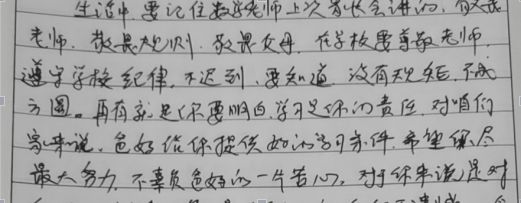 生活中,要记住数学老师上次家长会讲的,敬畏
老师,敬畏规则,敬畏父母,在学校要尊敬老师
遵守学校纪律,不迟到,要知道,没有规矩,不成
方圆。再有就是你要明白,学习是你的责任,对咱们
家来说,爸妈给你提供好的学习条件,希望你尽
最大努力,不辜负爸妈的一片苦心,对于你来说是对